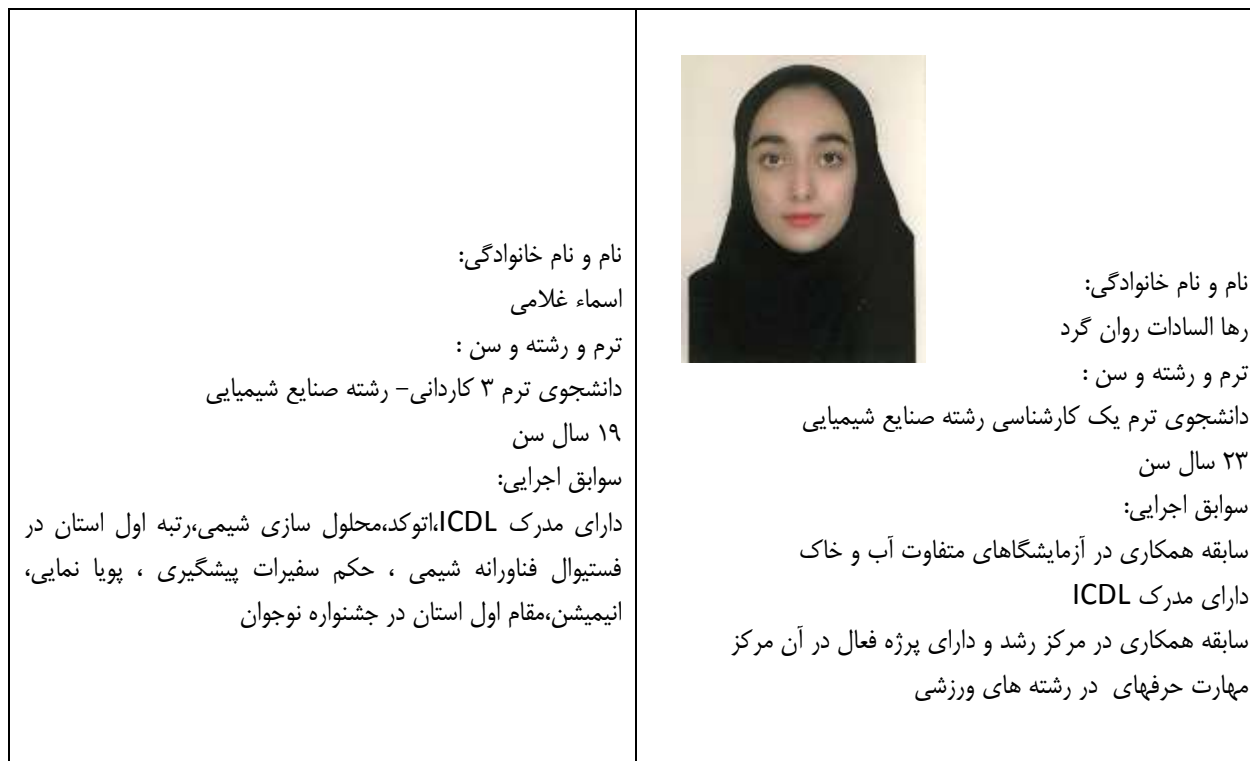 نام و نام خانوادگی:
رها السادات روان گرد
ترم و رشته و سن :
دانشجوی ترم یک کارشناسی رشته صنایع شیمیایی
۲۳ سال سن
سوابق اجرایی:
سابقه همکاری در آزمایشگاهای متفاوت آب و خاک
دارای مدرک ICDL
سابقه همکاری در مرکز رشد و دارای پرژه فعال در آن مرکز
مهارت حرفهای در رشته های ورزشی
نام و نام خانوادگی:
اسماء غلامی
ترم و رشته و سن :
دانشجوی ترم ۳ کاردانی– رشته صنایع شیمیایی
۱۹ سال سن
سوابق اجرایی:
دارای مدرک ICDL،اتوکد،محلول سازی شیمی،رتبه اول استان در
فستیوال فناورانه شیمی ، حکم سفیرات پیشگیری ، پویا نمایی،
انیمیشن،مقام اول استان در جشنواره نوجوان